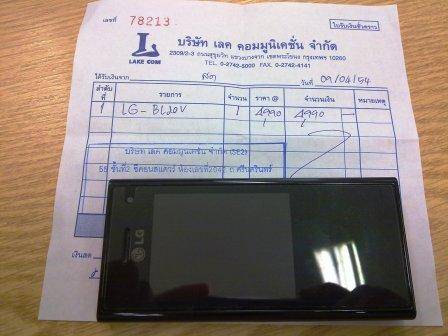 เลขที่ 78213
ใบรับเงินชั่วคราว
L
LAKE COM
บริษัท เลค คอมมูนิเคชั่น จำกัด
2309/2-3 ถนนสุขุมวิท แขวงบางจาก เขตพระโขนง กรุงเทพฯ 10260
TEL. 0-2742-5000 FAX. 0-2742-4141
ได้รับเงินจาก สด วันที่ 09/04/54
ลำดับที่ รายการ จำนวน ราคา @ จำนวนเงิน หมายเหตุ
1 LG-BL20V 1 4990 4990
บริษัท เลค คอมมูนิเคชั่น จำกัด (SE2)
55 ชั้นที่2 ซีคอนสแควร์ ห้องเลขที่2042 ถ.ศรีนครินทร์
เงินสด
LG